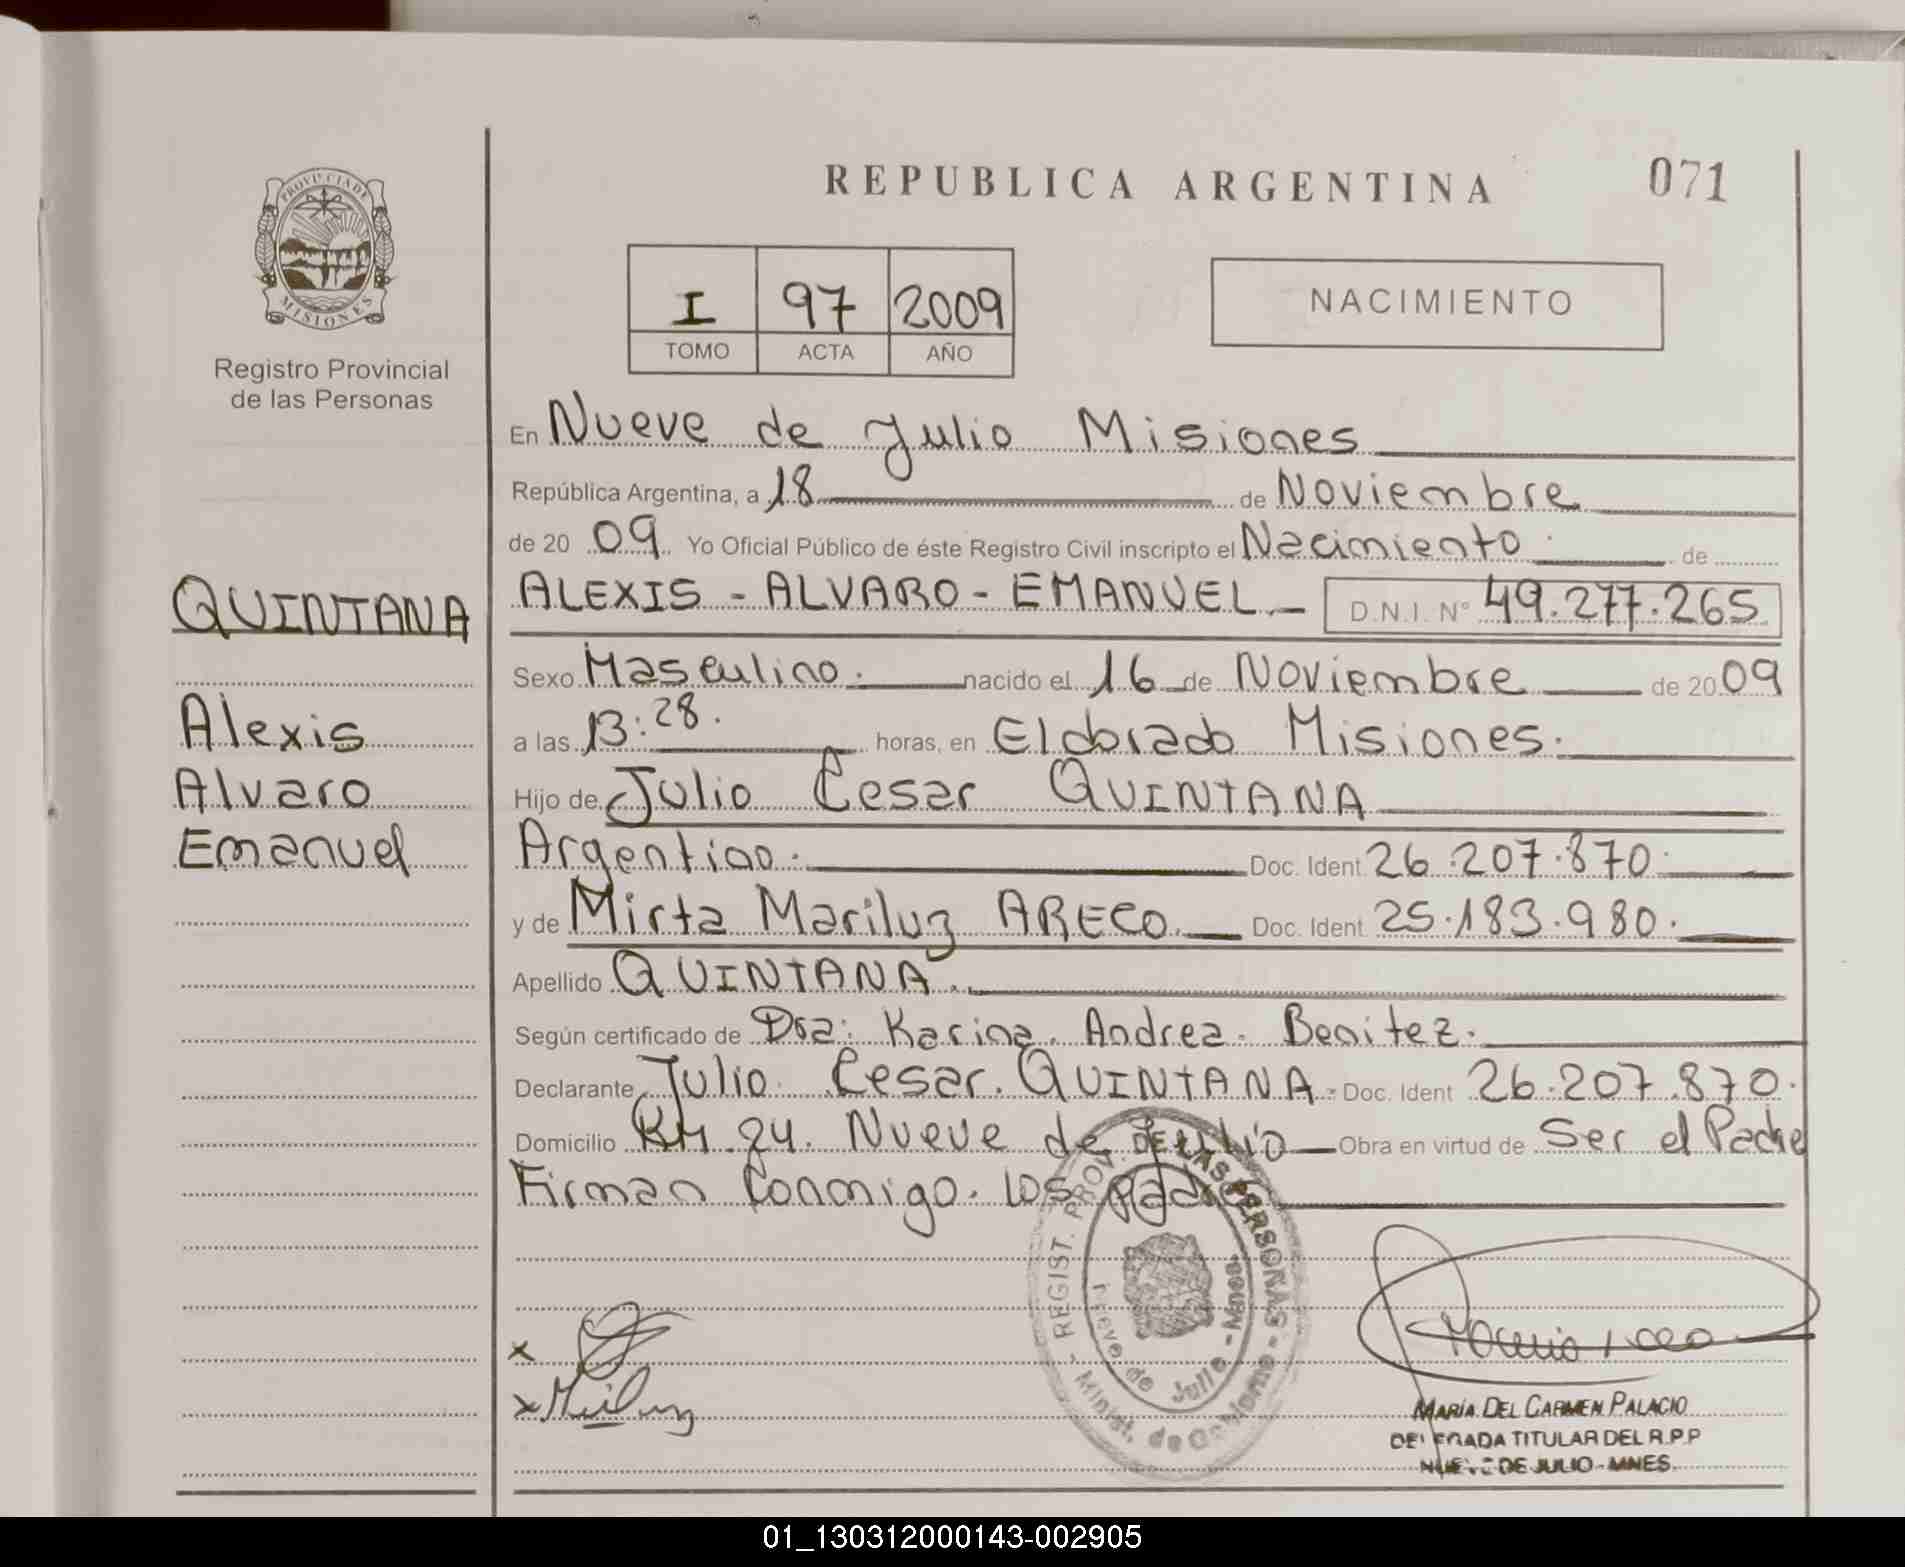 REPUBLICA ARGENTINA
071
PROVINCIA DE
MISIONES
Registro Provincial
de las Personas
I 97 2009
TOMO ACTA AÑO
NACIMIENTO
En Nueve de Julio Misiones
República Argentina, a 18 de Noviembre
de 20 09 Yo Oficial Público de éste Registro Civil inscripto el Nacimiento de
QUINTANA
Alexis
Alvaro
Emanuel
ALEXIS - ALVARO - EMANUEL D.N.I. Nº 49.277.265
Sexo Masculino. nacido el 16 de Noviembre de 20 09
a las 13:28. horas, en Eldorado Misiones.
Hijo de Julio Cesar QUINTANA
Argentino. Doc. Ident. 26.207.870.
y de Mirta Mariluz ARECO. Doc. Ident. 25.183.980.
Apellido QUINTANA.
Según certificado de Dra: Karina. Andrea. Benitez.
Declarante Julio Cesar. QUINTANA - Doc. Ident 26.207.870.
Domicilio KM 24. Nueve de Julio Obra en virtud de Ser el Padre
Firman Conmigo. los Padres
REGIST. PROV. DE LAS PERSONAS - Minist. de Gobierno -
Nueve de Julio - Mnes.
x
x Mariluz
MARÍA DEL CARMEN PALACIO
DELEGADA TITULAR DEL R.P.P
NUEVE DE JULIO - MNES.
01_130312000143-002905